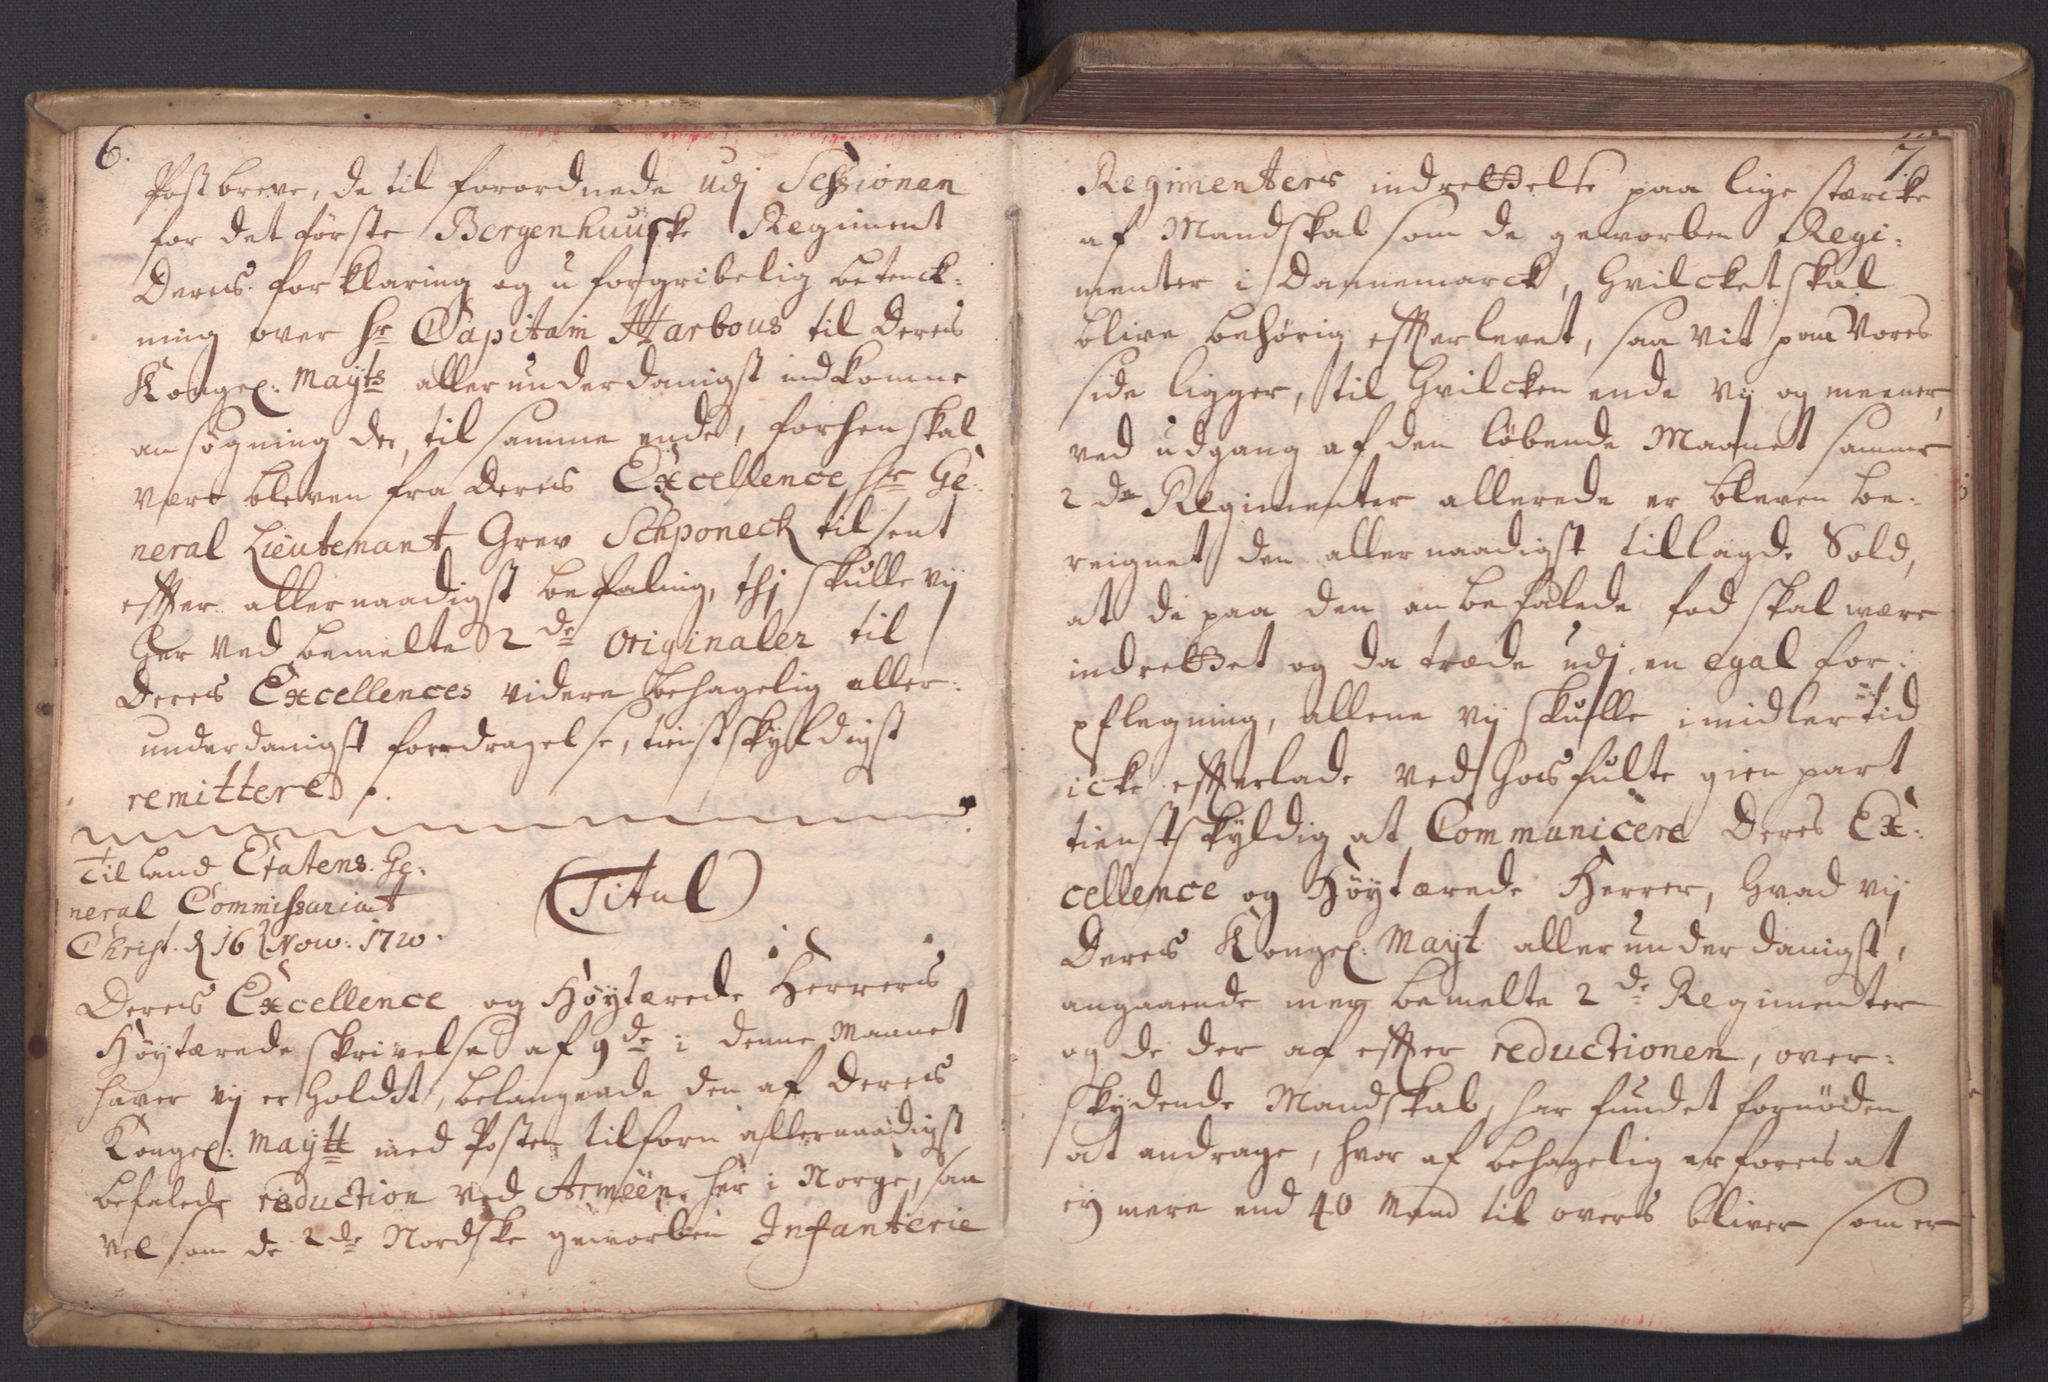 6.
Post breve, de til forordnede udj Sessionen
for det förste Bergenhuuske Regiment
Deris forklaring og u forgribelig betenck:
ning over hr Capitain Harbous til Deris
Kongel: Mayts allerunderdanigst indkomne
ansögning der, til samme ende, forhen skal
være bleven fra Deris Excellence hr Ge:
neral Lieutenant Grev Schponeck tilsent
effter allernaadigst befaling, thj skulle vij
her ved bemelte 2de originaler til
Deris Excellences videre behagelig aller:
underdanigst foredragelse, tienstskyldigst
remittere.
Til Land Etatens Ge:
neral Commissariat
Christ. d 16 Nov: 1720.
(Titul)
Deris Excellence og Höytærede Herreris
Höytærede skrivelse af 9de i denne Maanet
haver vij erholdt, belangende den af Deris
Kongel: Maytt med Posten tilforn allernaadigst
befalede reduction ved Arméen her i Norge, saa
vel som de 2de Nordske geworben Infanterie
7.
Regimenters indrettelse paa lige stærcke
af Mandskab som de geworben Regi:
menter i Dannemarck, hvilcket skal
blive behörig effterlevet, saa vit paa Vores
side ligger, til hvilcken ende vij og meener,
ved udgang af den löbende Maanet samme
2de Regimenter allerede er bleven be:
reignet den allernaadigst tillagde Sold,
at de paa den anbefalede fod skal være
indrettet og da træde udj en egal for:
pflegning, allene vij skulle imidlertid
icke effterlade ved hosfulte gien part
tienstskyldig at Communicere Deres Ex:
cellence og Höytærede Herrer, hvad vij
Deris Kongel: Mayt allerunderdanigst,
angaaende meg bemelte 2de Regimenter
og de der af effter reductionen, over:
skydende Mandskab, har fundet fornöden
at andrage, hvor af behagelig erforis at
ej mere end 40 Mand til overs bliver som er